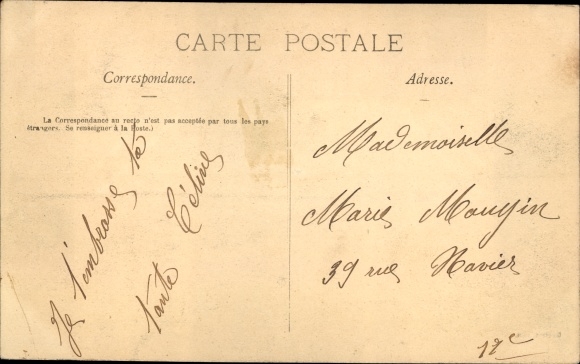 CARTE POSTALE
Correspondance.
La Correspondance au recto n'est pas acceptée par tous les pays
étrangers. Se renseigner à la Poste.)
Je t'embrasse ta
tante Céline
Adresse.
Mademoiselle
Marie Mougin
39 rue Navier
17e